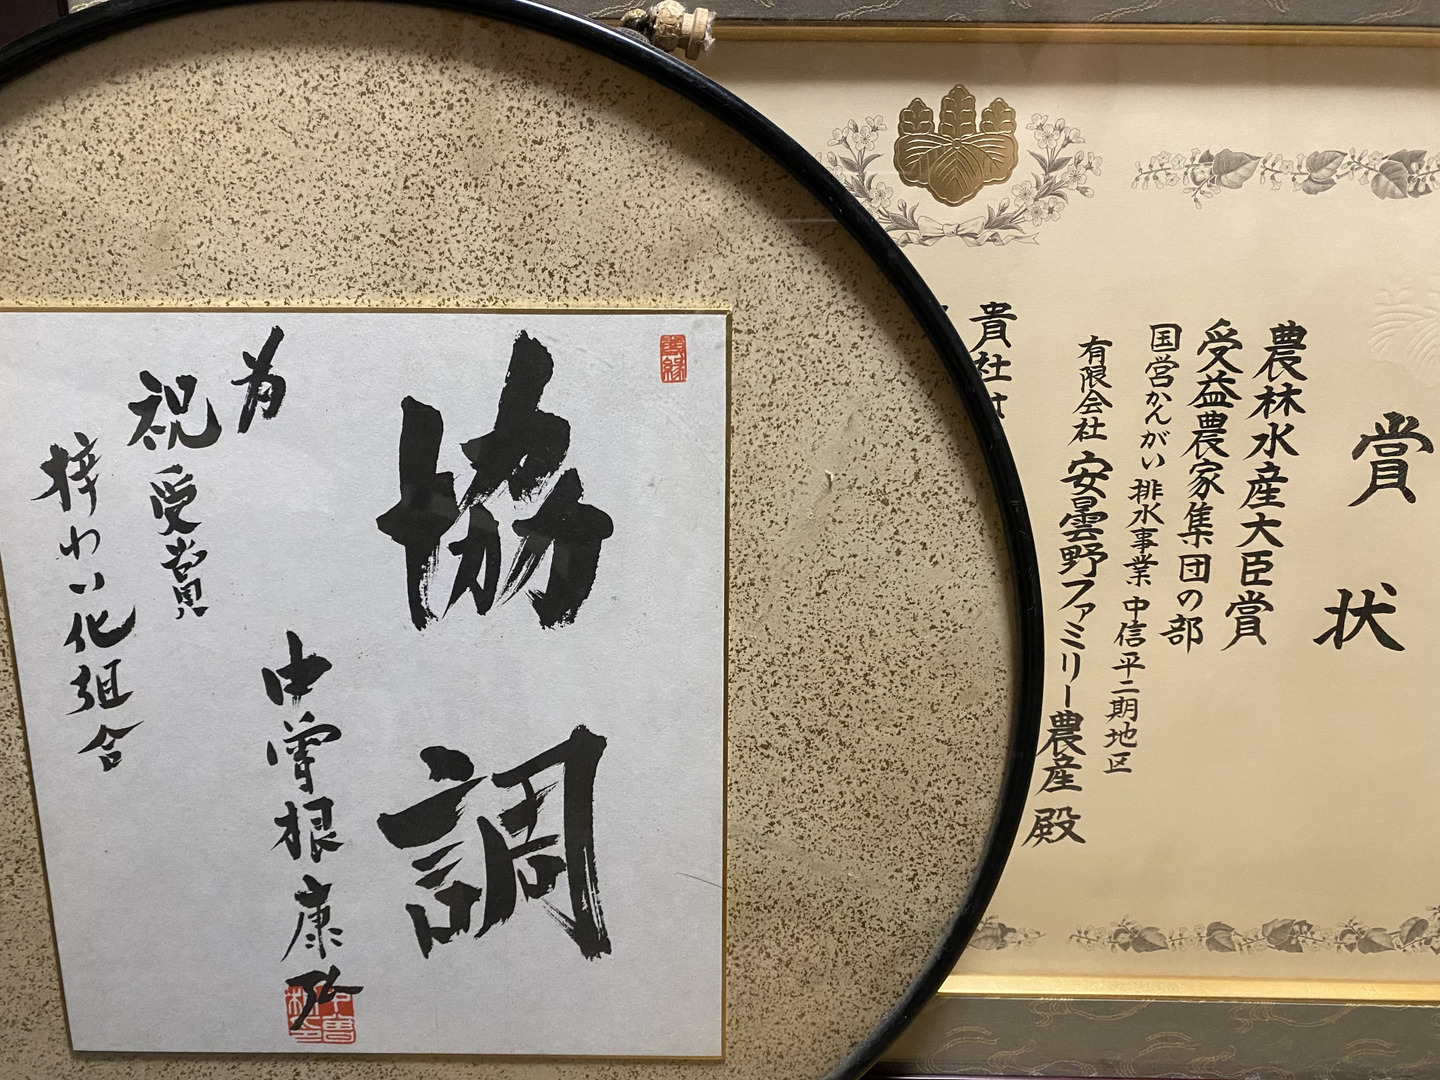 協調
中曽根康弘
為
祝受賞
梓わい化組合
賞状
農林水産大臣賞
受益農家集団の部
国営かんがい排水事業 中信平二期地区
有限会社 安曇野ファミリー農産 殿
貴社は